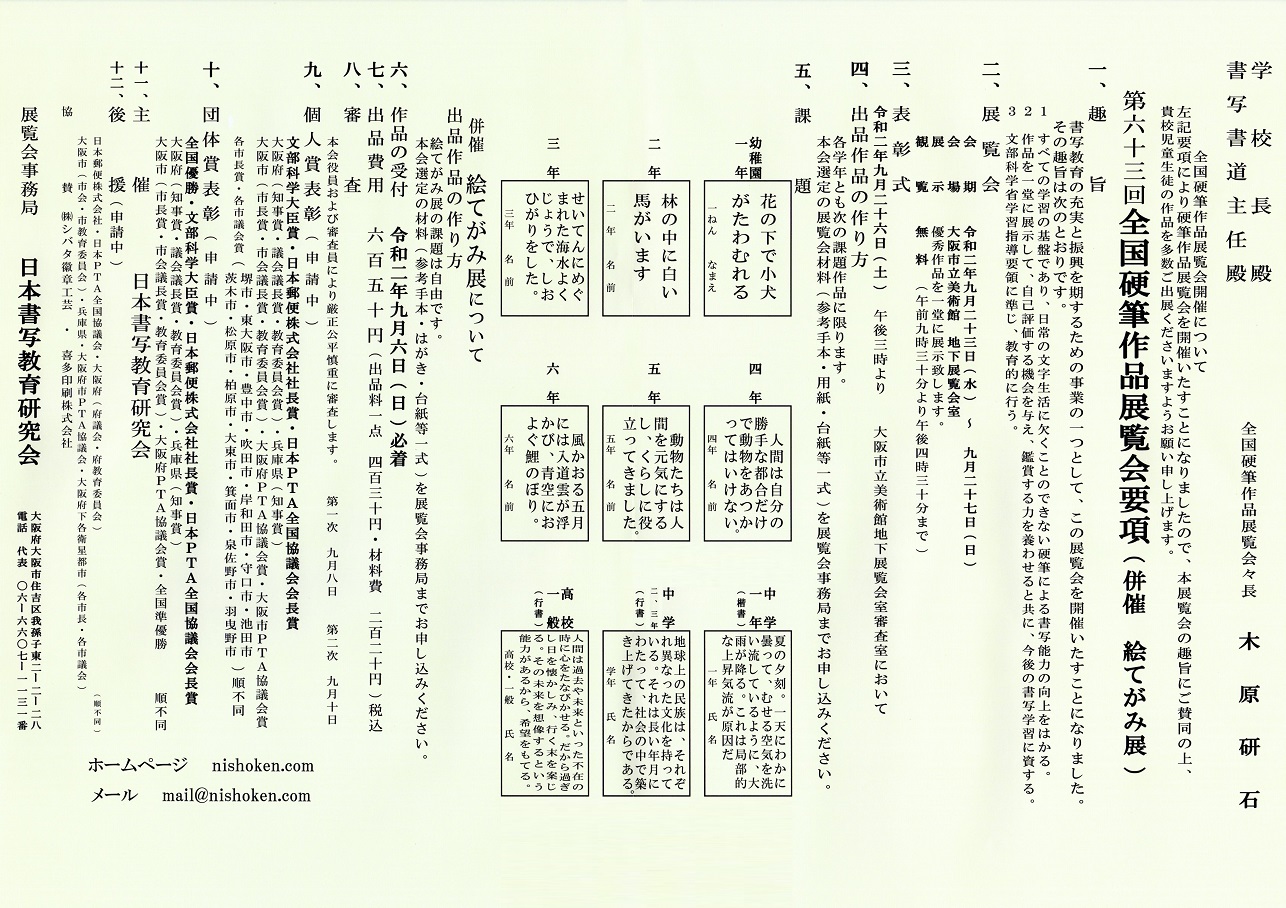 学校長殿
書写書道主任殿
全国硬筆作品展覧会々長　木原研石
全国硬筆作品展覧会開催について
左記要項により硬筆作品展覧会を開催いたすことになりましたので、本展覧会の趣旨にご賛同の上、
貴校児童生徒の作品を多数ご出展くださいますようお願い申し上げます。
第六十三回全国硬筆作品展覧会要項（併催　絵てがみ展）
一、趣旨
書写教育の充実と振興を期するための事業の一つとして、この展覧会を開催いたすことになりました。
その趣旨は次のとおりです。
1　すべての学習の基盤であり、日常の文字生活に欠くことのできない硬筆による書写能力の向上をはかる。
2　作品を一堂に展示して、自己評価する機会を与え、鑑賞する力を養わせると共に、今後の書写学習に資する。
3　文部科学省学習指導要領に準じ、教育的に行う。
二、展覧会
会期　令和二年九月二十三日（水）～　九月二十七日（日）
会場　大阪市立美術館　地下展覧会室
展示　優秀作品を一堂に展示致します。
観覧　無料（午前九時三十分より午後四時三十分まで）
三、表彰式
令和二年九月二十六日（土）　午後三時より　大阪市立美術館地下展覧会室審査室において
四、出品作品の作り方
各学年とも次の課題作品に限ります。
本会選定の展覧会材料（参考手本・用紙・台紙等一式）を展覧会事務局までお申し込みください。
五、課題
幼稚園
一年
花の下で小犬
がたわむれる
一ねん　なまえ
二年
林の中に白い
馬がいます
二年　名前
三年
せいてんにめぐ
まれた海水よく
じょうで、しお
ひがりをした。
三年　名前
四年
人間は自分の
勝手な都合だけ
で動物をあつか
ってはいけない。
四年　名前
五年
動物たちは人
間を元気にする
し、くらしに役
立ってきました。
五年　名前
六年
風かおる五月
には入道雲が浮
かび、青空にお
よぐ鯉のぼり。
六年　名前
中学
一年
（楷書）
夏の夕刻。一天にわかに
曇って、むせる空気を洗
い流しているように、大
雨が降る。これは局部的
な上昇気流が原因だ
一年　氏名
中学
二、三年
（行書）
地球上の民族は、それぞ
れ異なった文化を持って
いる。それは長い年月に
わたって、社会の中で築
き上げてきたからである。
学年　氏名
高校
一般
（行書）
人間は過去や未来といった不在の
時に心をたなびかせる。だから過ぎ
し日を懐かしみ、行く末を案じ
る。その未来を想像するという
能力があるから、希望をもてる。
高校・一般　氏名
併催　絵てがみ展について
出品作品の作り方
絵てがみ展の課題は自由です。
本会選定の材料（参考手本・はがき・台紙等一式）を展覧会事務局までお申し込みください。
六、作品の受付　令和二年九月六日（日）必着
七、出品費用　六百五十円（出品料一点　四百三十円・材料費　二百二十円）税込
八、審査
本会役員および審査員により厳正公平慎重に審査します。　第一次　九月八日　第二次　九月十日
九、個人賞表彰（申請中）
文部科学大臣賞・日本郵便株式会社社長賞・日本PTA全国協議会会長賞
大阪府（知事賞・議会議長賞・教育委員会賞）・兵庫県（知事賞）
大阪市（市長賞・市会議長賞・教育委員会賞）・大阪府PTA協議会賞・大阪市PTA協議会賞
各市長賞・各市議会賞（堺市・東大阪市・豊中市・吹田市・岸和田市・守口市・池田市
茨木市・松原市・柏原市・大東市・箕面市・泉佐野市・羽曳野市）順不同
十、団体賞表彰（申請中）
全国優勝・文部科学大臣賞・日本郵便株式会社社長賞・日本PTA全国協議会会長賞
大阪府（知事賞・議会議長賞・教育委員会賞）・兵庫県（知事賞）
大阪市（市長賞・市会議長賞・教育委員会賞）・大阪府PTA協議会賞・全国準優勝　順不同
十一、主催　日本書写教育研究会
十二、後援（申請中）
日本郵便株式会社・日本PTA全国協議会・大阪府（府議会・府教育委員会）
大阪市（市会・市教育委員会）・兵庫県・大阪府市PTA協議会・大阪府下各衛星都市（各市長・各市議会）（順不同）
協賛　㈱シバタ徽章工芸・喜多印刷株式会社
展覧会事務局　日本書写教育研究会
大阪府大阪市住吉区我孫子東二ー二ー二八
電話　代表　〇六ー六六〇七ー一一三一番
ホームページ　nishoken.com
メール　mail@nishoken.com